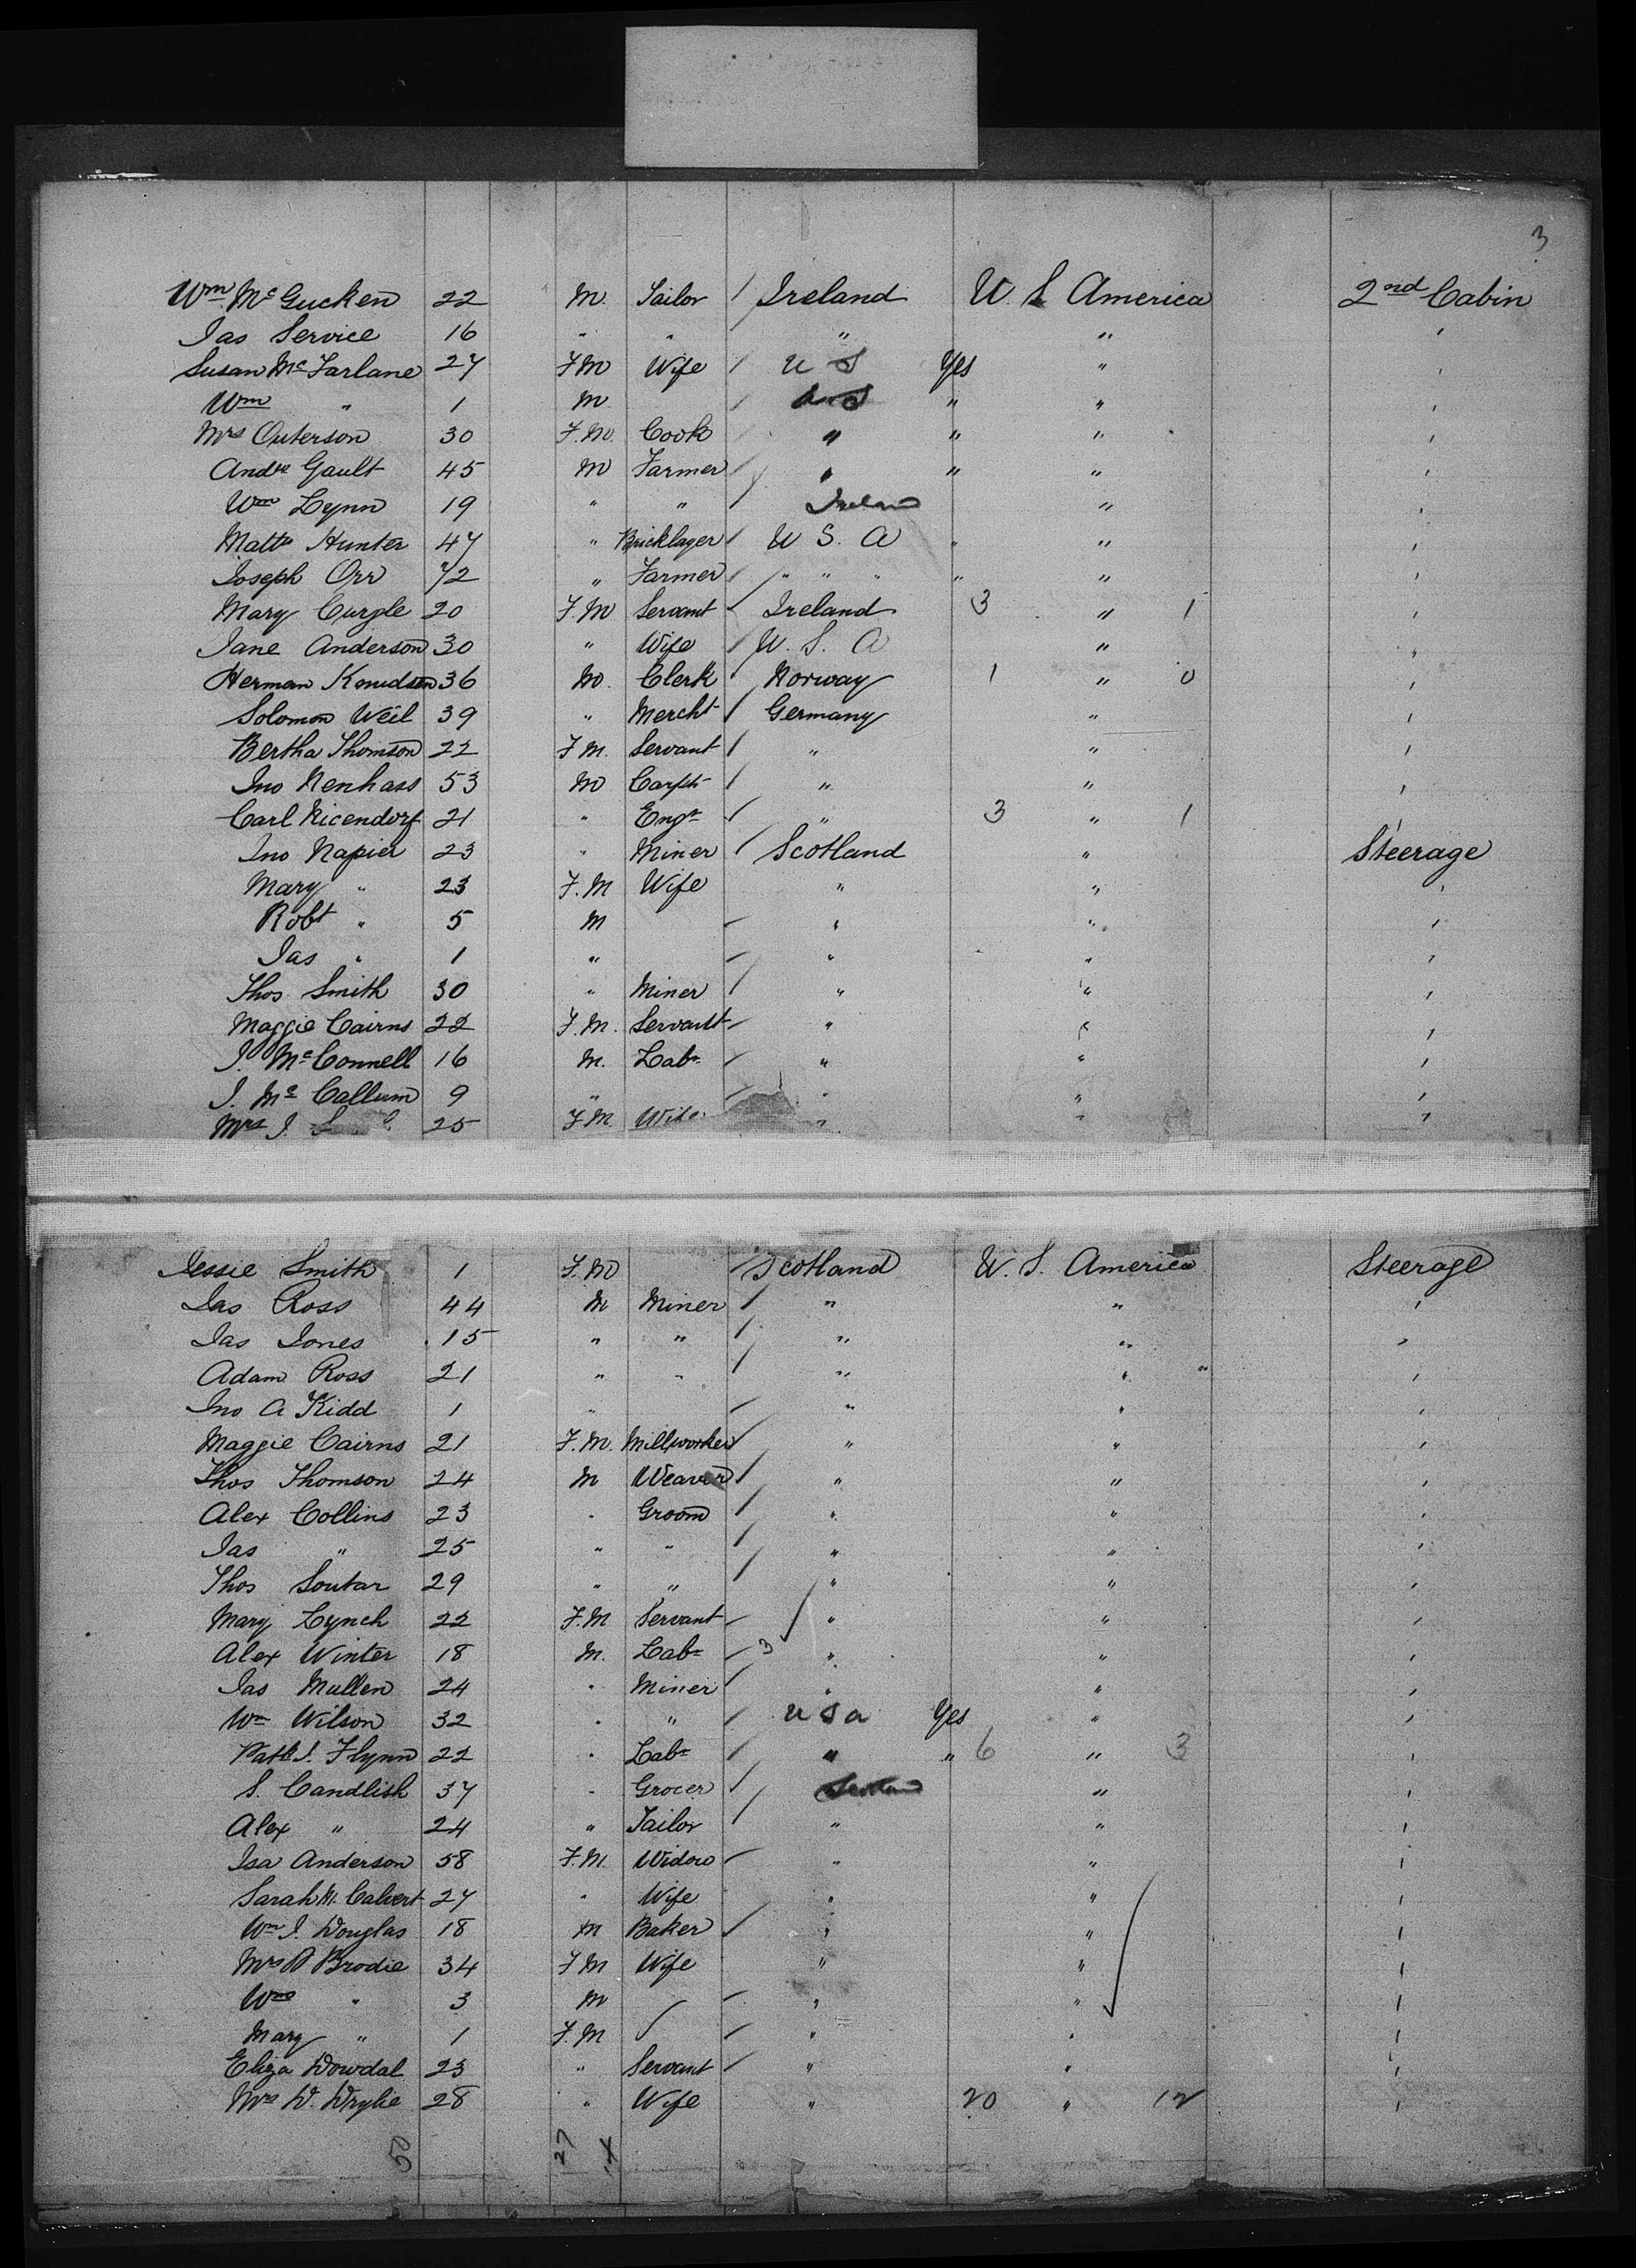 3
Wm. McGucken 22 M. Tailor / Ireland U. S. America 2nd Cabin
Jas Service 16 " " " " "
Susan McFarlane 27 F.M Wife / U S Yes " "
Wm " 1 M / U S " " "
Mrs Outerson 30 F.M. Cook / " " " "
Andw Gault 45 M Farmer / " " " "
Wm Lynn 19 " " / Ireland " "
Matts Hunter 47 " Bricklayer / U S. A " " "
Joseph Orr 72 " Farmer / " " " " " "
Mary 20 F.M Servant / Ireland 3 " 1 "
Jane Anderson 30 " Wife / U. S. A " "
Herman Knudsen 36 M. Clerk / Norway 1 " 0 "
Solomon Weil 39 " Mercht / Germany " "
Bertha Thomson 22 F M. Servant / " " "
Jno Nenhass 53 M Carptr / " " "
Carl Nicendorf 21 " Engr / " 3 " 1 "
Jno Napier 23 " Miner / Scotland " Steerage
Mary " 23 F. M Wife " " "
Robt " 5 M / " " "
Jas " 1 " / " " "
Thos Smith 30 " Miner / " " "
Maggie Cairns 22 F. M. Servant / " " "
J. McConnell 16 M. Labr / " " "
J. McCallum 9 " / " " "
Mrs J. 25 F.M. Wife " " "
Jessie Smith 1 F.M Scotland U. S. America Steerage
Jas Ross 44 M Miner / " " "
Jas Jones 15 " " / " " "
Adam Ross 21 " " / " " " "
Jno A Kidd 1 " / " " "
Maggie Cairns 21 F. M. Millworker / " " "
Thos Thomson 24 M Weaver / " " "
Alex Collins 23 " Groom / " " "
Jas " 25 " " / " " "
Thos Soutar 29 " " / " " "
Mary Lynch 22 F.M Servant / " " "
Alex Winter 18 M. Labr / 3 " " "
Jas Mullen 24 " Miner / " " "
Wm Wilson 32 " " / U S a Yes " "
Patk J. Flynn 22 " Labr / " " 6 " 3 "
S. Candlish 37 " Grocer / Scotland " "
Alex " 24 " Tailor / " " "
Isa Anderson 58 F.M. Widow / " " "
Sarah M. Calvert 27 " Wife " " "
Wm J. Douglas 18 M Baker / " " "
Mrs Brodie 34 F M Wife " " "
Wm " 3 M / " " "
Mary " 1 F. M / " " "
Eliza Dowdal 23 " Servant / " " "
Mrs D. Wylie 28 " Wife " 20 " 12 "
50 27